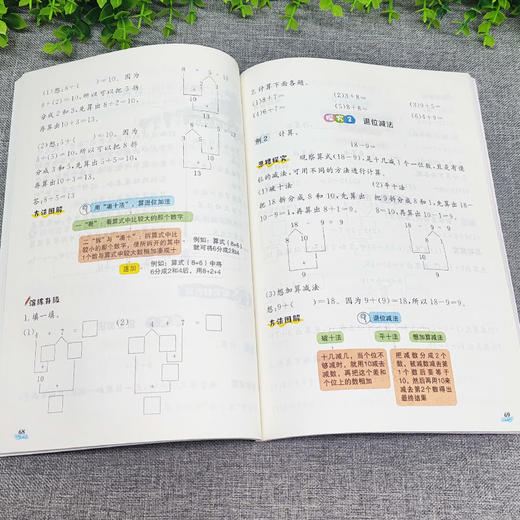 (1)想:8+(　　)=10。因为
8+(2)=10,所以可以把5拆
分成2和3,先算出8+2=10,
再算出10+3=13。
8 + 5 = 13
2 3
10
13
(2)想:5+(　　)=10。因为
5+(5)=10,所以可以把8拆
分成5和3,先算出5+5=10,
再算出10+3=13。
答:8+5=13
13
方法图解
用“凑十法”,算进位加法
一“看”:看算式中比较大的那个数字
二“拆”与“凑十”:拆算式中比
较小的那个数字,使所拆开的其中
1个数与算式中较大数相加凑成十
例如:算式(8+6)
可将6分成2和4
连加
例如:算式(8+6)中将
6分成2和4后,用8+2+4
演练升级
1.填一填。
(1) 4 + 7 =
10
(2) 4 + 7 =
10
68
2.计算下面各题。
(1)8+7=　(2)3+8=　(3)9+5=
(4)6+7=　(5)8+8=　(6)4+9=
探究2 退位减法
例2 计算。
18-9=
思路探究 观察算式(18-9),是十几减几
的减法,可用不同的方法进行计算。
(1)破十法　(2)平十法
把18拆分成8和10,先算出
10-9=1,再算出8+1=9。
把9拆分成8和1,先算出18-
8=10,再算出10-1=9。
18 - 9 = 9
8 10
1
9
18 - 9 = 9
8 1
10
9
(3)想加算减法
想:9+(　　)=18。因为9+(9)=18,所以18-9=9。
方法图解
退位减法
破十法　平十法　想加算减法
十几减几,当个位不
够减时,就用10减去
减数,再把这个差和
个位上的数相加
把减数分成2个
数,被减数减去第
1个数后要等于
10,然后再用10来
减去第2个数得出
最终结果
69